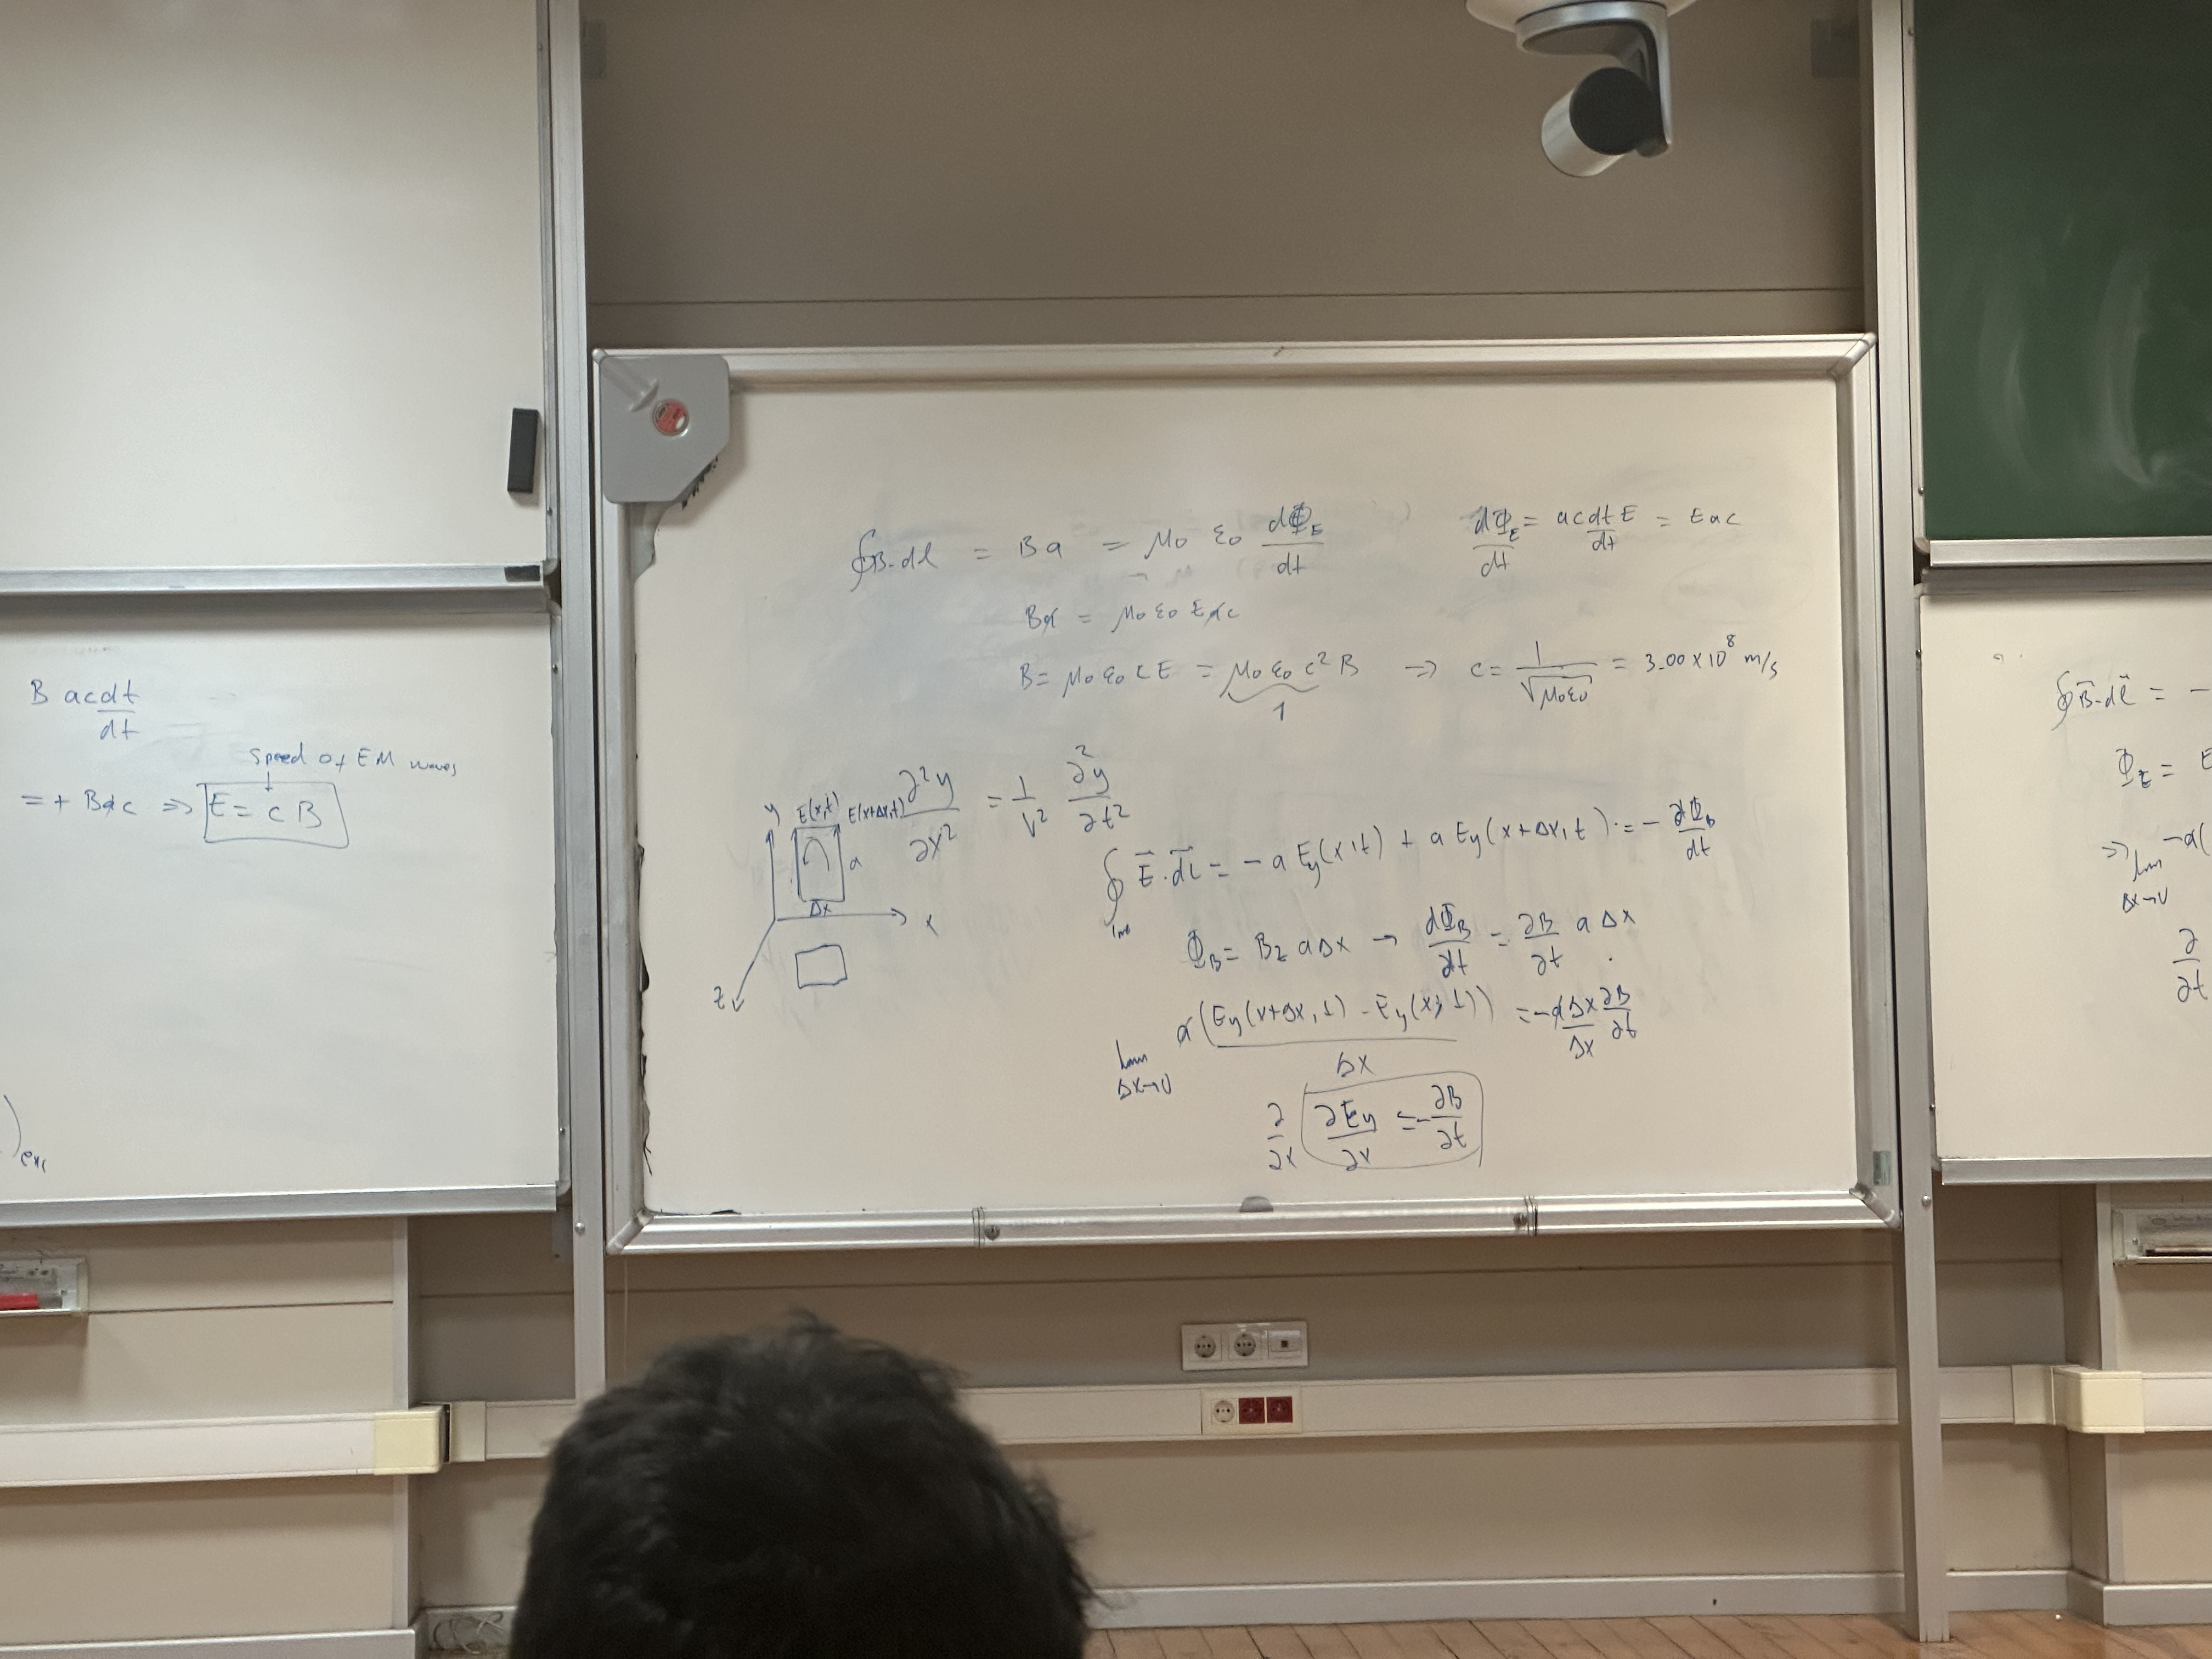 B acdt/dt
Speed of EM waves
↓
= + Bac ⇒ E = cB
∮B·dl = Ba = μ₀ ε₀ dΦ_E/dt
dΦ_E/dt = acdtE/dt = Eac
Ba = μ₀ε₀Eac
B = μ₀ε₀cE = μ₀ε₀c²B ⇒ c = 1/√μ₀ε₀ = 3.00x10⁸ m/s
1
∂²y/∂x² = 1/v² ∂²y/∂t²
y E(x,t) E(x+Δx,t)
a
Δx
x
z
∮ E⃗·dl⃗ = -a E_y(x,t) + a E_y(x+Δx,t) = - dΦ_B/dt
Φ_B = B_z aΔx → dΦ_B/dt = ∂B/∂t a Δx
lim Δx→0 a(E_y(x+Δx,t) - E_y(x,t))/Δx = -aΔx/Δx ∂B/∂t
∂/∂x ∂E_y/∂x = -∂B/∂t
∮B⃗·dl⃗ = -
Φ_E = E
⇒ lim Δx→0 -a(
∂/∂t